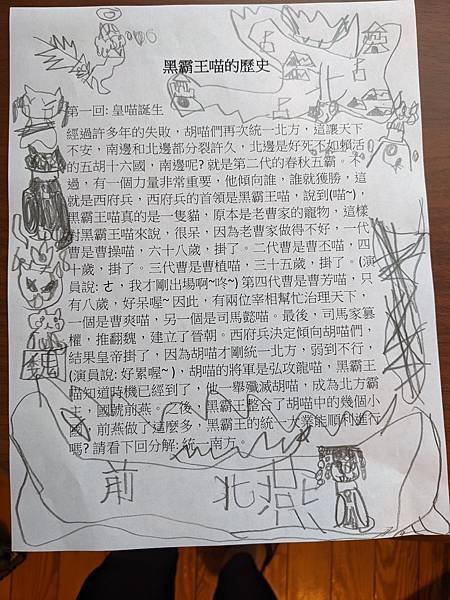 黑霸王喵的歷史
第一回: 皇喵誕生
經過許多年的失敗，胡喵們再次統一北方，這讓天下
不安，南邊和北邊都分裂許久，北邊是好死不如賴活
的五胡十六國，南邊呢? 就是第二代的春秋五霸。不
過，有一個力量非常重要，他傾向誰，誰就獲勝，這
就是西府兵，西府兵的首領是黑霸王喵，說到(喵~)，
黑霸王喵真的是一隻貓，原本是老曹家的寵物，這樣
對黑霸王喵來說，很呆，因為老曹家做得不好，一代
曹是曹操喵，六十八歲，掛了。二代曹是曹丕喵，四
十歲，掛了。三代曹是曹植喵，三十五歲，掛了。(演
員說: ㄜ，我才剛出場啊~咚~) 第四代曹是曹芳喵，只
有八歲，好呆喔~ 因此，有兩位宰相幫忙治理天下，
一個是曹爽喵，另一個是司馬懿喵。最後，司馬家篡
權，推翻魏，建立了晉朝。西府兵決定傾向胡喵們，
結果皇帝掛了，因為胡喵才剛統一北方，弱到不行，
(演員說: 好累喔~ )，胡喵的將軍是弘攻龍喵，黑霸王
喵知道時機已經到了，他一舉殲滅胡喵，成為北方霸
主，國號前燕。之後，黑霸王整合了胡喵中的幾個小
國，前燕做了這麼多，黑霸王的統一大業能順利進行
嗎? 請看下回分解: 統一南方。
前 北燕